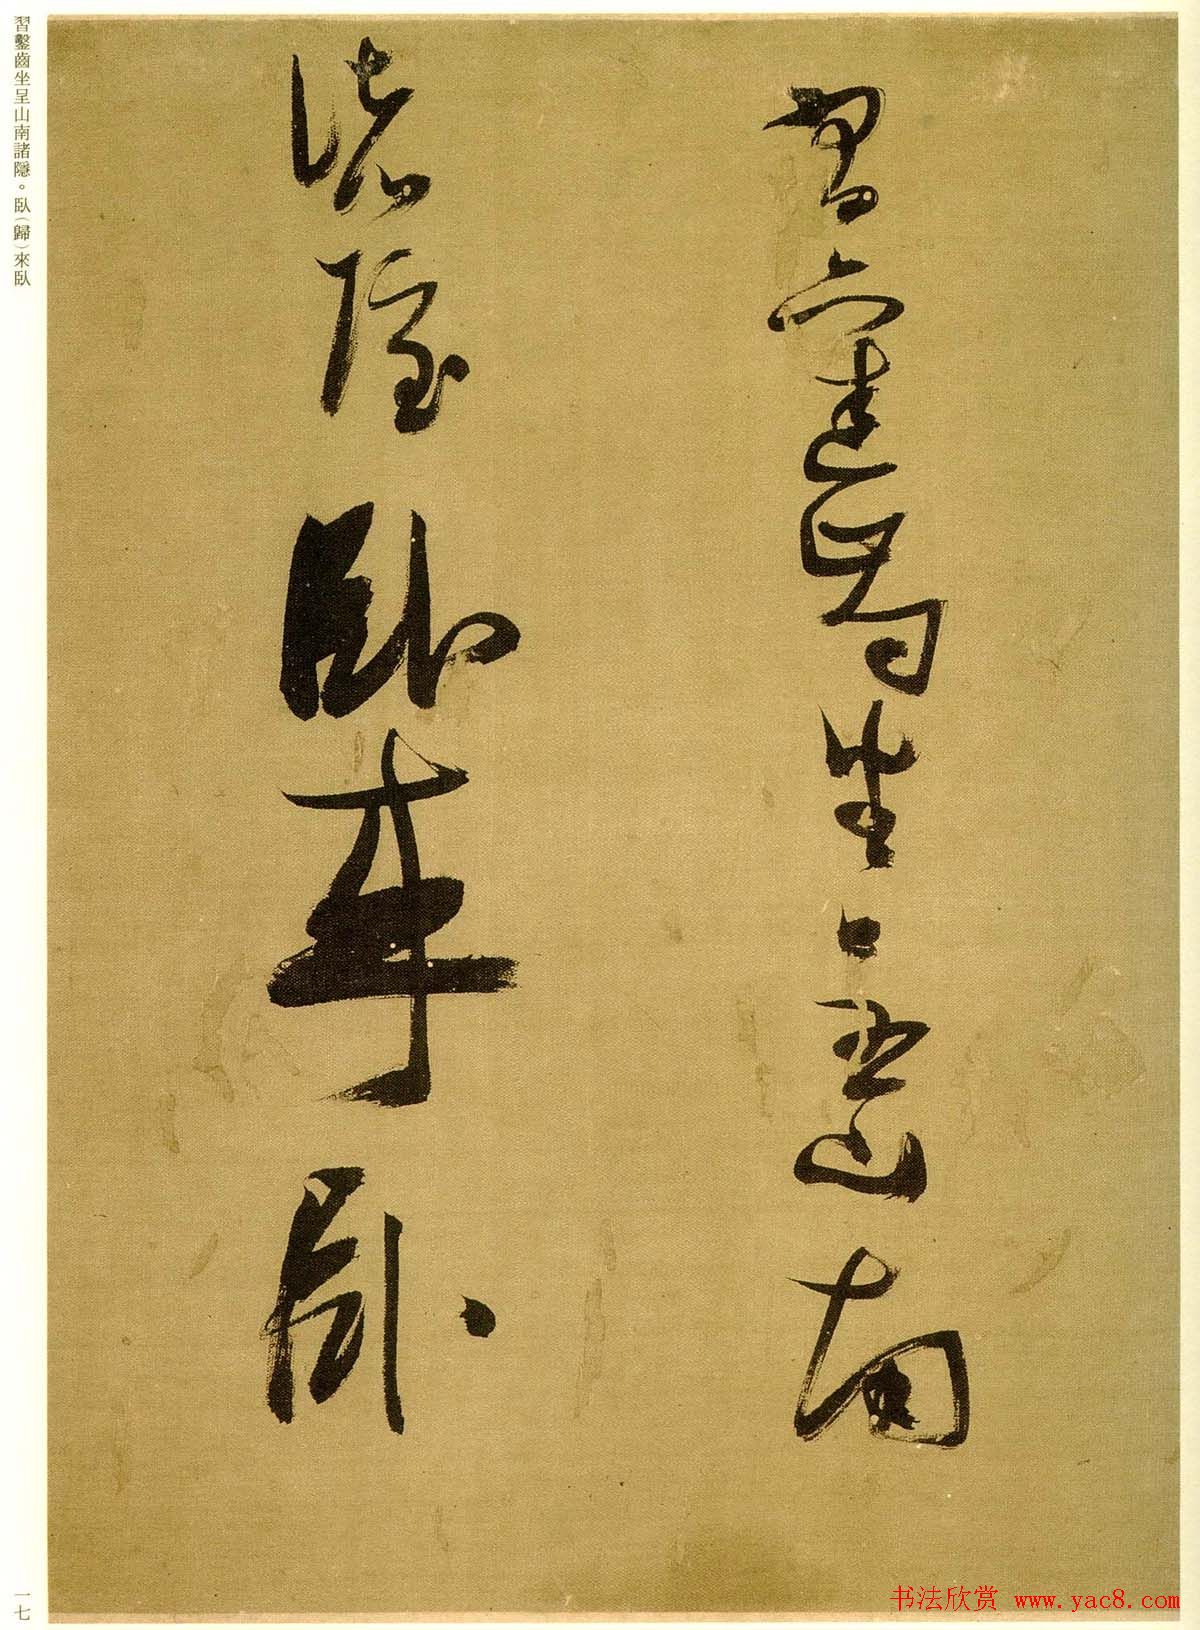 習鑿齒坐呈山南
諸隱臥來臥
習鑿齒坐呈山南諸隱。臥(歸)來臥
一七
书法欣赏 www.yac8.com